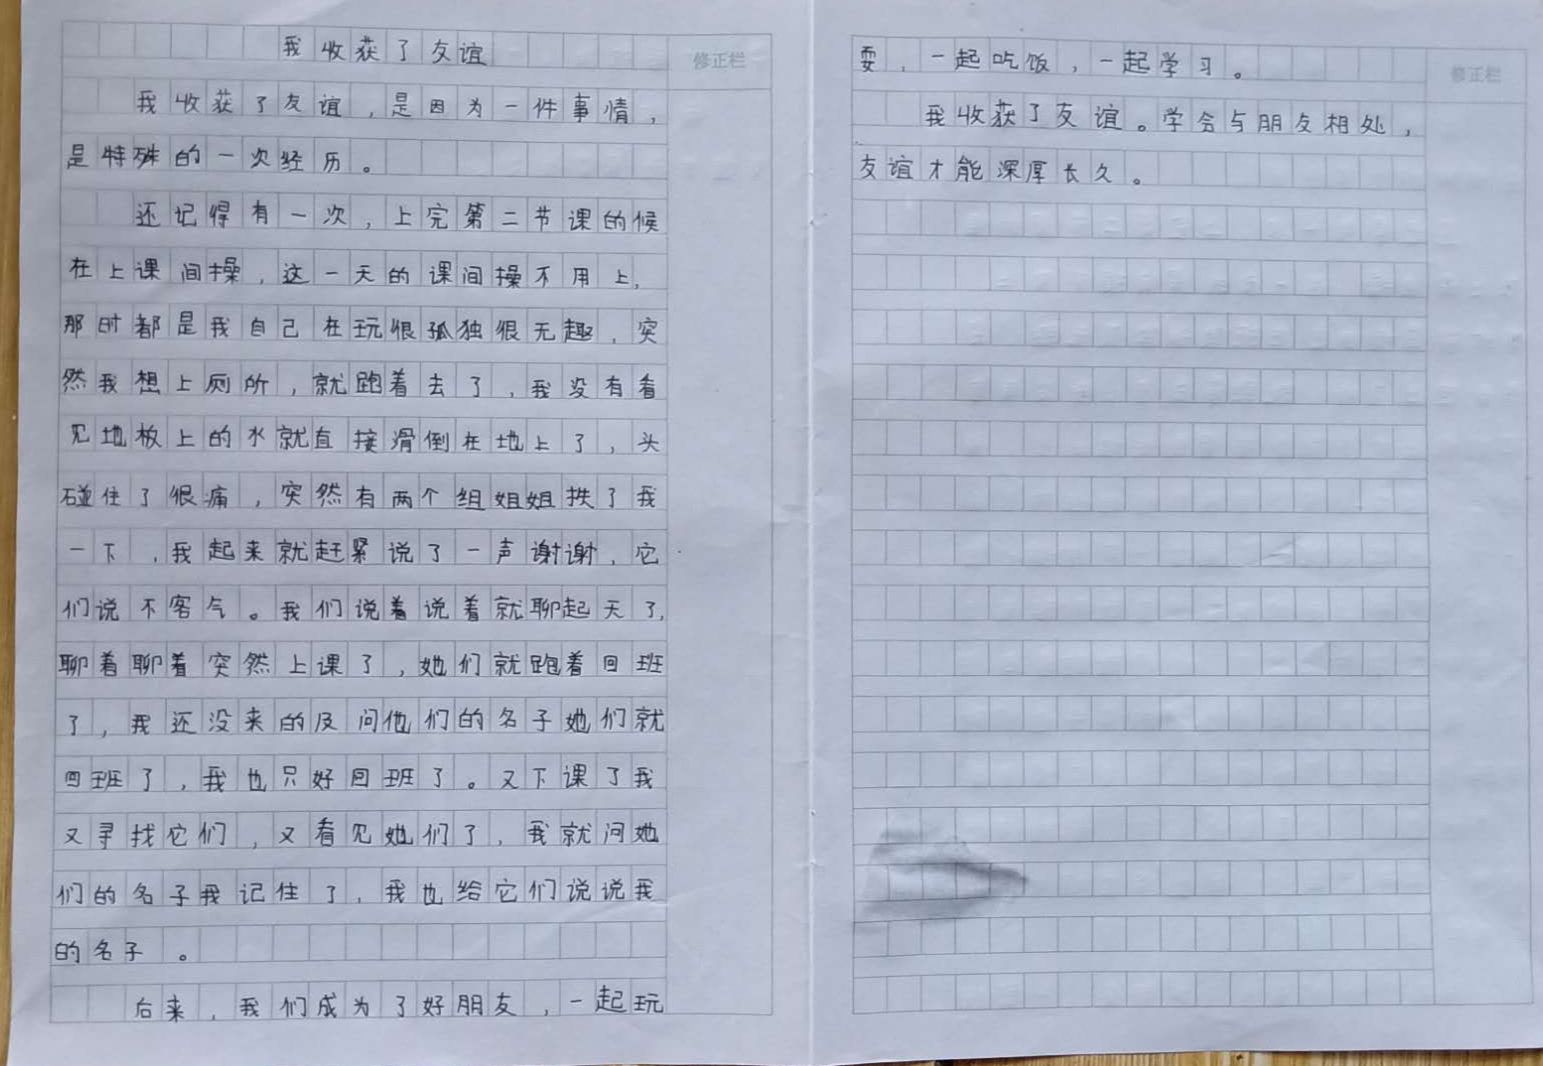 我收获了友谊
修正栏
我收获了友谊，是因为一件事情，
是特殊的一次经历。
还记得有一次，上完第二节课的候
在上课间操，这一天的课间操不用上，
那时都是我自己在玩很孤独很无趣，突
然我想上厕所，就跑着去了，我没有看
见地板上的水就直接滑倒在地上了，头
碰住了很痛，突然有两个组姐姐扶了我
一下，我起来就赶紧说了一声谢谢，它
们说不客气。我们说着说着就聊起天了，
聊着聊着突然上课了，她们就跑着回班
了，我还没来的及问他们的名子她们就
回班了，我也只好回班了。又下课了我
又寻找它们，又看见她们了，我就问她
们的名子我记住了，我也给它们说说我
的名子。
后来，我们成为了好朋友，一起玩
耍，一起吃饭，一起学习。
修正栏
我收获了友谊。学会与朋友相处，
友谊才能深厚长久。